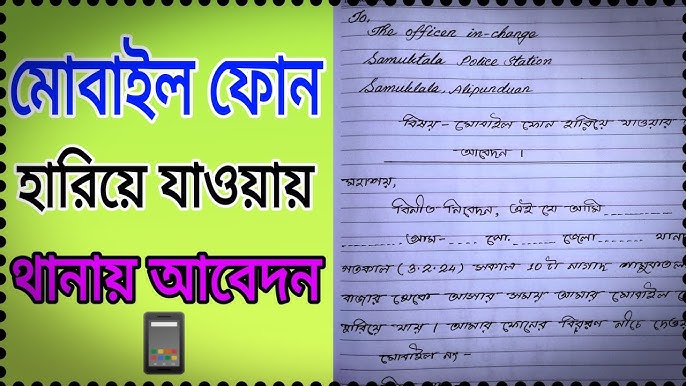 মোবাইল ফোন
হারিয়ে যাওয়ায়
থানায় আবেদন
To,
The officer in-change
Samuktala Police Station
Samuktala, Alipurduar
বিষয় - মোবাইল ফোন হারিয়ে যাওয়ার
আবেদন ।
মহাশয়,
বিনীত নিবেদন, এই যে আমি ..........
........ গ্রাম- ..... পো. ...... জেলা ...... থানা
গতকাল (3.2.24) সকাল 10 টা নাগাদ শামুকতলা
বাজার থেকে আসার সময় আমার মোবাইল
হারিয়ে যায় । আমার ফোনের বিবরণ নীচে
মোবাইল নং -